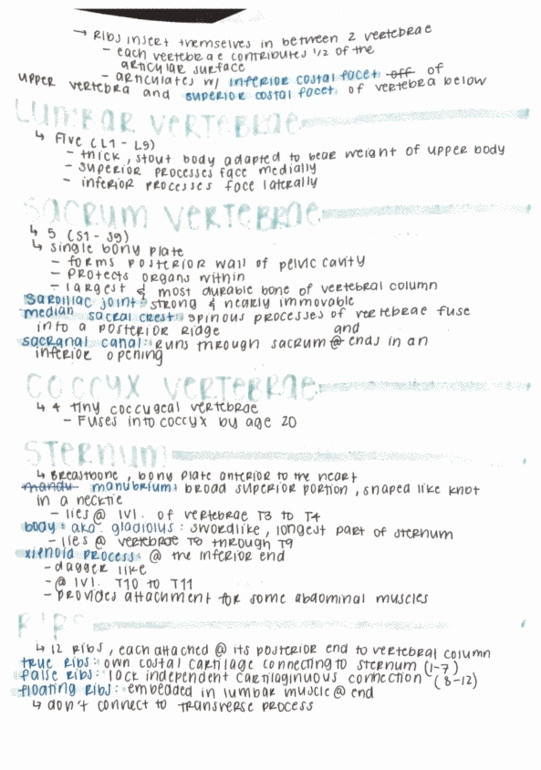 → Ribs insert themselves in between 2 vertebrae
- each vertebrae contributes 1/2 of the
articular surface
- articulates w/ inferior costal facet off of
upper vertebra and superior costal facet of vertebra below
LUMBAR VERTEBRAE
↳ Five (L1 - L5)
- thick, stout body adapted to bear weight of upper body
- superior processes face medially
- inferior processes face laterally
SACRUM VERTEBRAE
↳ 5 (S1 - S5)
↳ single bony plate
- forms posterior wall of pelvic cavity
- protects organs within
- largest & most durable bone of vertebral column
Saroiliac joint: strong & nearly immovable
median sacral crest: spinous processes of vertebrae fuse
into a posterior ridge
and
sacranal canal: runs through sacrum @ ends in an
inferior opening
COCCYX VERTEBRAE
↳ 4 tiny coccygeal vertebrae
- Fuses into coccyx by age 20
STERNUM
↳ Breastbone, bony plate anterior to the heart
mandu manubrium: broad superior portion, shaped like knot
in a necktie
- lies @ lvl. of vertebrae T3 to T4
body: aka. gladiolus: swordlike, longest part of sternum
- lies @ vertebrae T5 through T9
xiphoid process: @ the inferior end
- dagger like
- @ lvl. T10 to T11
- provides attachment for some abdominal muscles
RIPS
↳ 12 ribs, each attached @ its posterior end to vertebral column
true ribs: own costal cartilage connecting to sternum (1-7)
false ribs: lack independent cartilaginous connection (8-12)
floating ribs: embedded in lumbar muscle @ end
↳ don't connect to transverse process